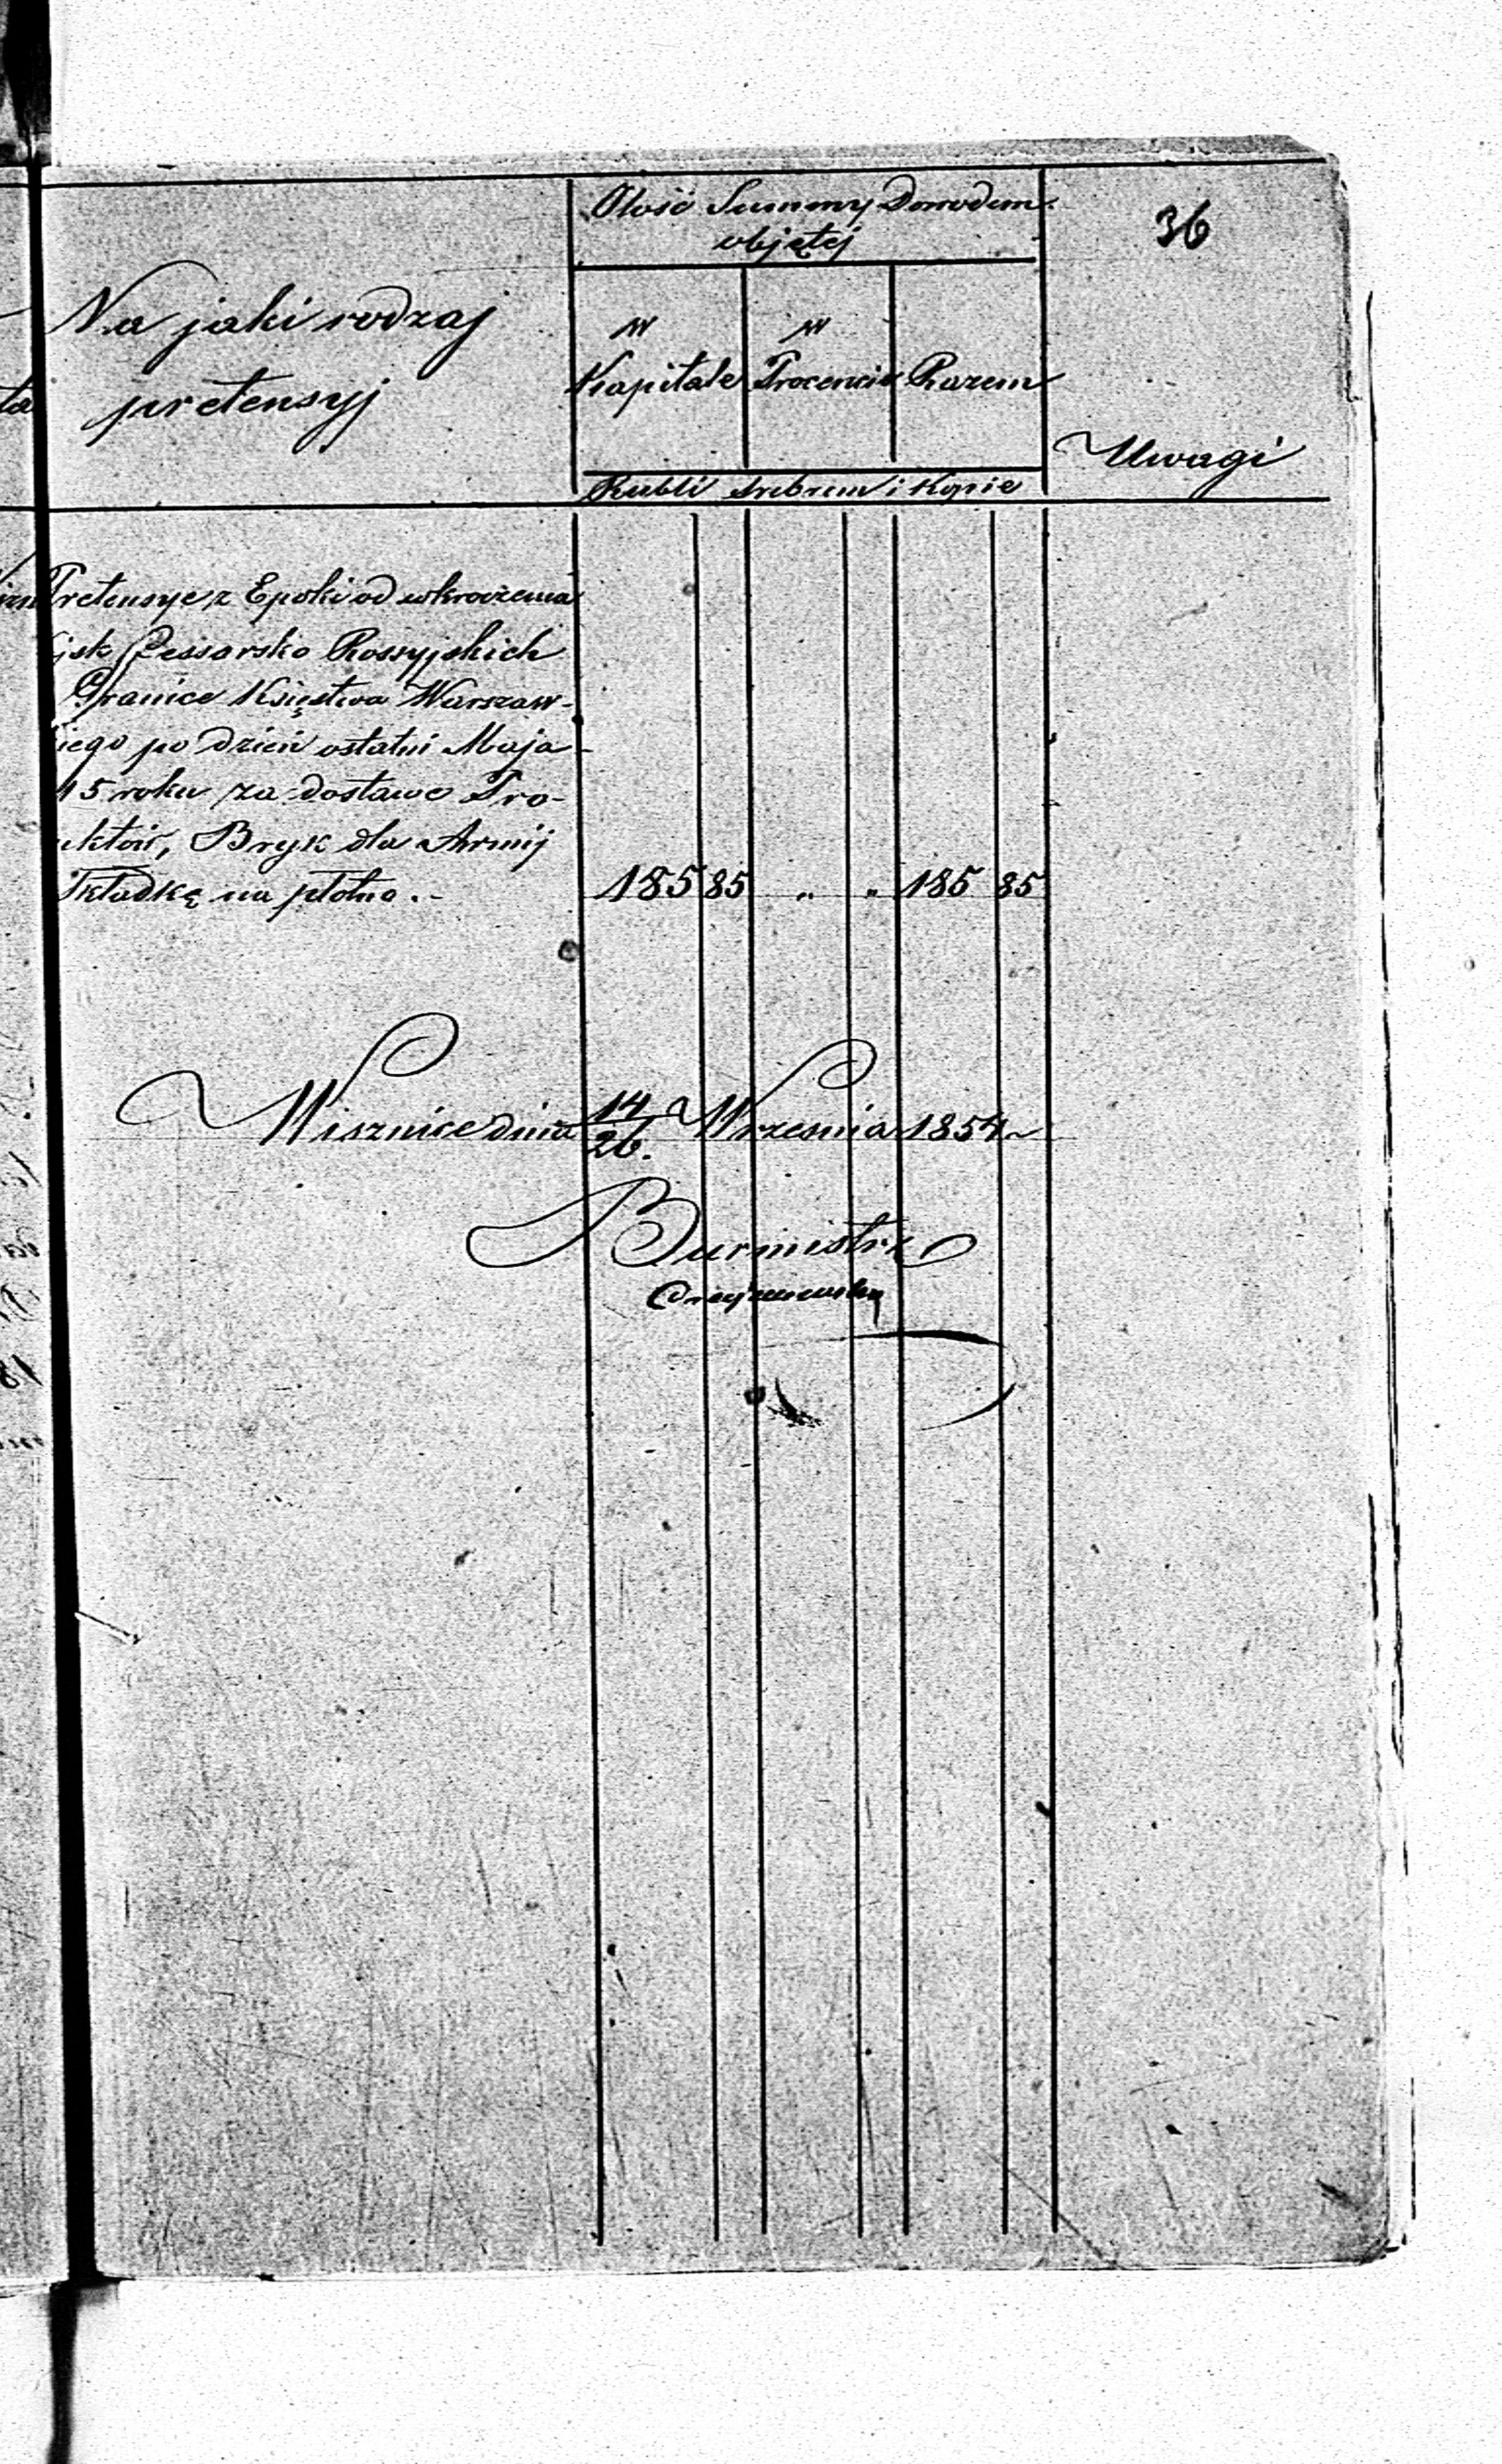 36
Na jaki rodzaj
pretensyj
Ilość Summy Dowodem
objętej
w
Kapitale
w
Procencie
Razem
Rubli srebrem i Kopie
Uwagi
Pretensye z Epoki od wkroczenia
jsk Cessarsko Rossyjskich
Granice Księstwa Warszaw-
iego po dzień ostatni Maja
15 roku za dostawe Pro-
uktów, Bryk dla Armij
Składkę na płótno.-
185 85 „ „ 185 85
Wisznice dnia 14/26. Września 1854
Burmistrz